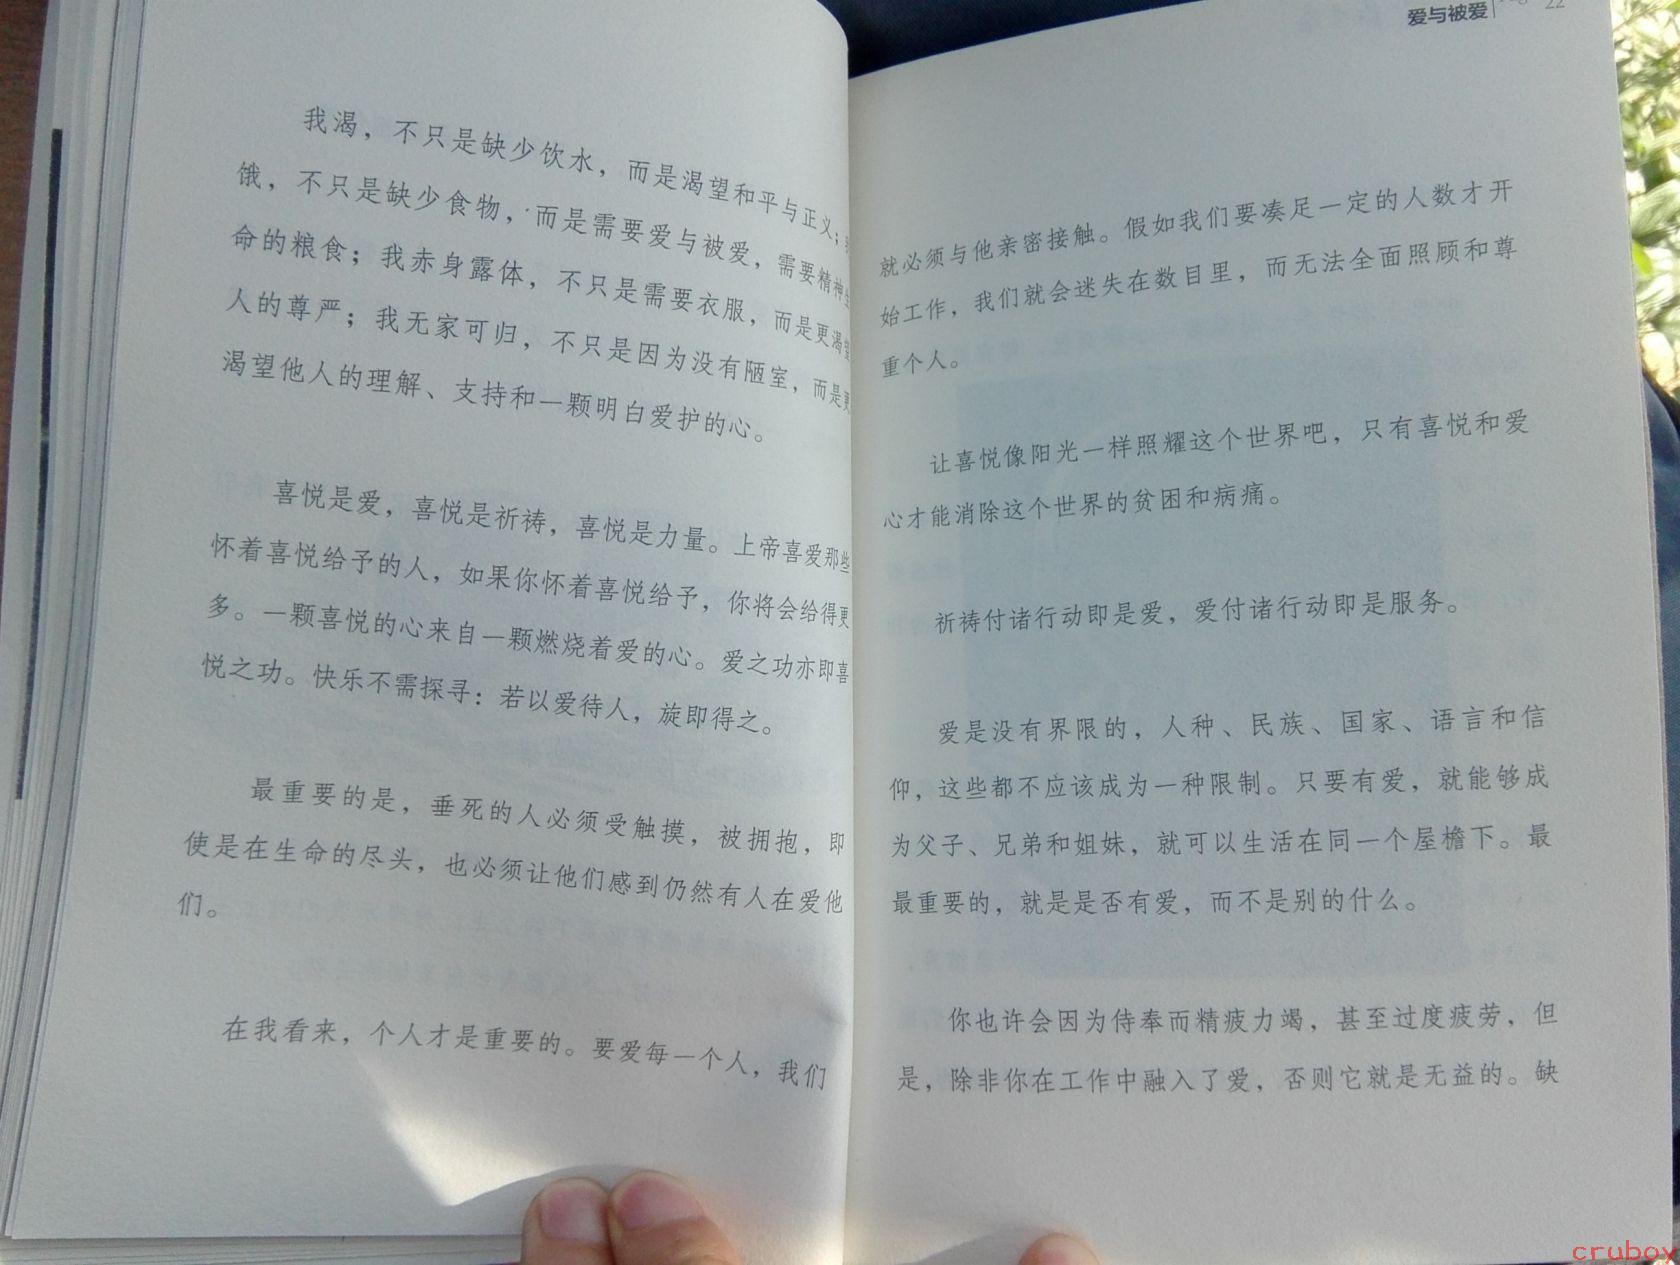 我渴，不只是缺少饮水，而是渴望和平与正义；
饿，不只是缺少食物，而是需要爱与被爱，需要精神生
命的粮食；我赤身露体，不只是需要衣服，而是更渴望
人的尊严；我无家可归，不只是因为没有陋室，而是更
渴望他人的理解、支持和一颗明白爱护的心。
喜悦是爱，喜悦是祈祷，喜悦是力量。上帝喜爱那些
怀着喜悦给予的人，如果你怀着喜悦给予，你将会给得更
多。一颗喜悦的心来自一颗燃烧着爱的心。爱之功亦即喜
悦之功。快乐不需探寻：若以爱待人，旋即得之。
最重要的是，垂死的人必须受触摸，被拥抱，即
使是在生命的尽头，也必须让他们感到仍然有人在爱他
们。
在我看来，个人才是重要的。要爱每一个人，我们
爱与被爱
22
就必须与他亲密接触。假如我们要凑足一定的人数才开
始工作，我们就会迷失在数目里，而无法全面照顾和尊
重个人。
让喜悦像阳光一样照耀这个世界吧，只有喜悦和爱
心才能消除这个世界的贫困和病痛。
祈祷付诸行动即是爱，爱付诸行动即是服务。
爱是没有界限的，人种、民族、国家、语言和信
仰，这些都不应该成为一种限制。只要有爱，就能够成
为父子、兄弟和姐妹，就可以生活在同一个屋檐下。最
最重要的，就是是否有爱，而不是别的什么。
你也许会因为侍奉而精疲力竭，甚至过度疲劳，但
是，除非你在工作中融入了爱，否则它就是无益的。缺
cruboy